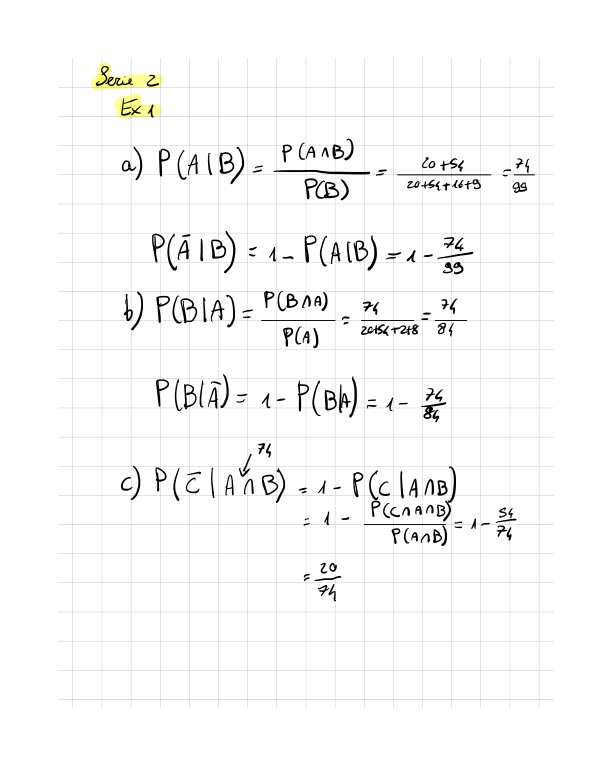 Serie 2
Ex 1
a) P(A|B) = P(A∩B) / P(B) = 20+54 / 20+54+16+9 = 74/99
P(Ā|B) = 1 - P(A|B) = 1 - 74/99
b) P(B|A) = P(B∩A) / P(A) = 74 / 20+54+2+8 = 74/84
P(B|Ā) = 1 - P(B|A) = 1 - 74/84
74
c) P(C̄|A∩B) = 1 - P(C|A∩B)
= 1 - P(C∩A∩B) / P(A∩B) = 1 - 54/74
= 20/74